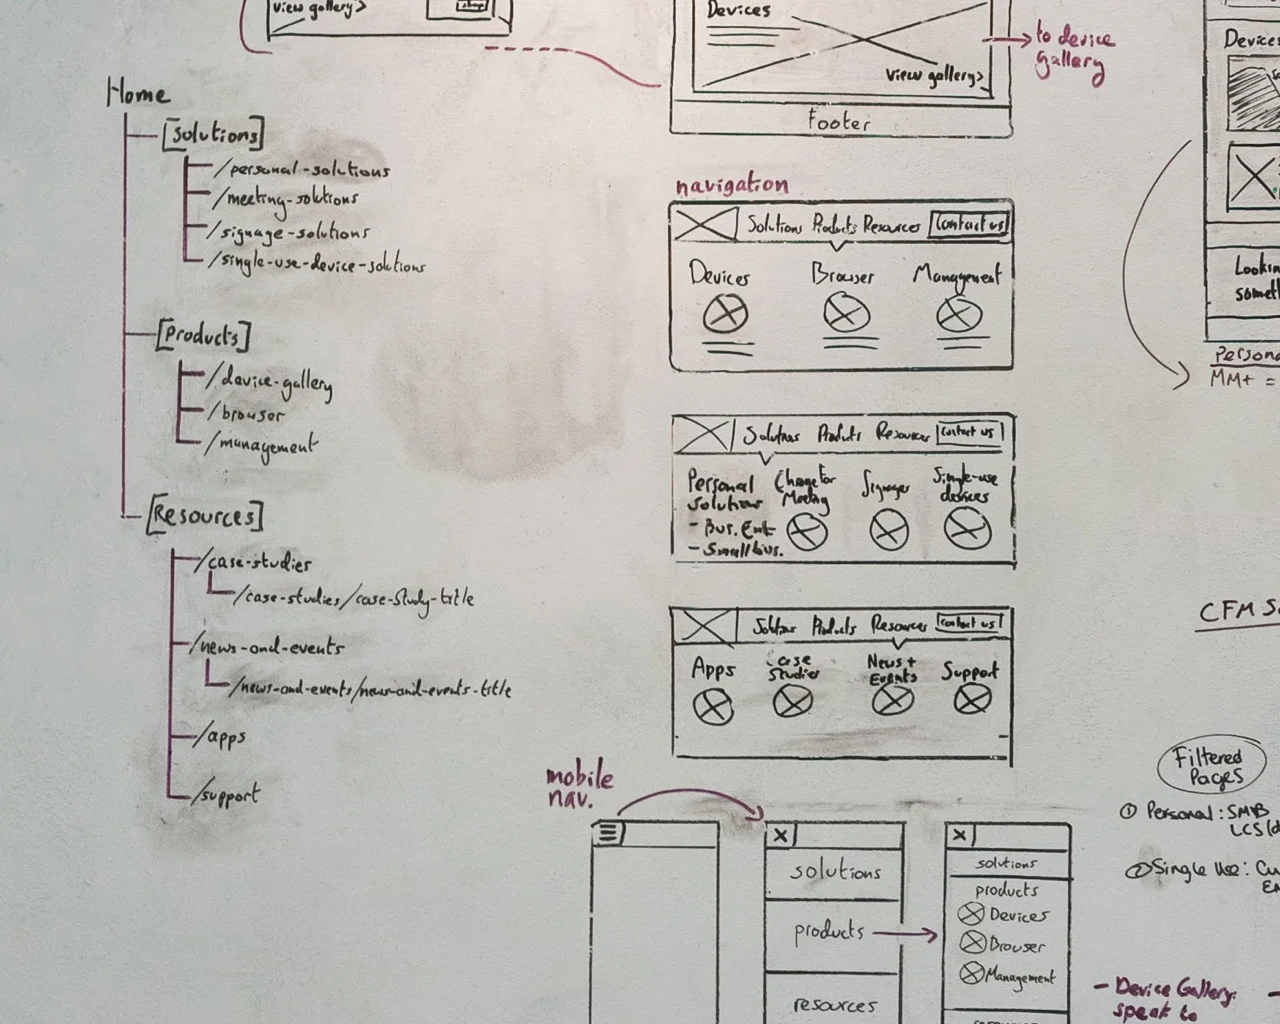 view gallery>
Devices
view gallery>
Footer
to device
gallery
Devices
Home
[Solutions]
/personal-solutions
/meeting-solutions
/signage-solutions
/single-use-device-solutions
[Products]
/device-gallery
/browser
/management
[Resources]
/case-studies
/case-studies/case-study-title
/news-and-events
/news-and-events/news-and-events-title
/apps
/support
navigation
Solutions Products Resources Contact us
Devices Browser Management
Solutions Products Resources Contact us
Personal
Solutions
- Bus. Ent
- Small bus.
Meeting
Signage
Single-use
devices
Solutions Products Resources Contact us
Apps
Case
Studies
News +
Events
Support
mobile
nav.
solutions
products
resources
solutions
products
Devices
Browser
Management
Lookin
someth
Persona
MM+ =
CFM S
Filtered
Pages
① Personal: SMB
LCS(d
② Single Use: Cu
- Device Gallery:
speak to